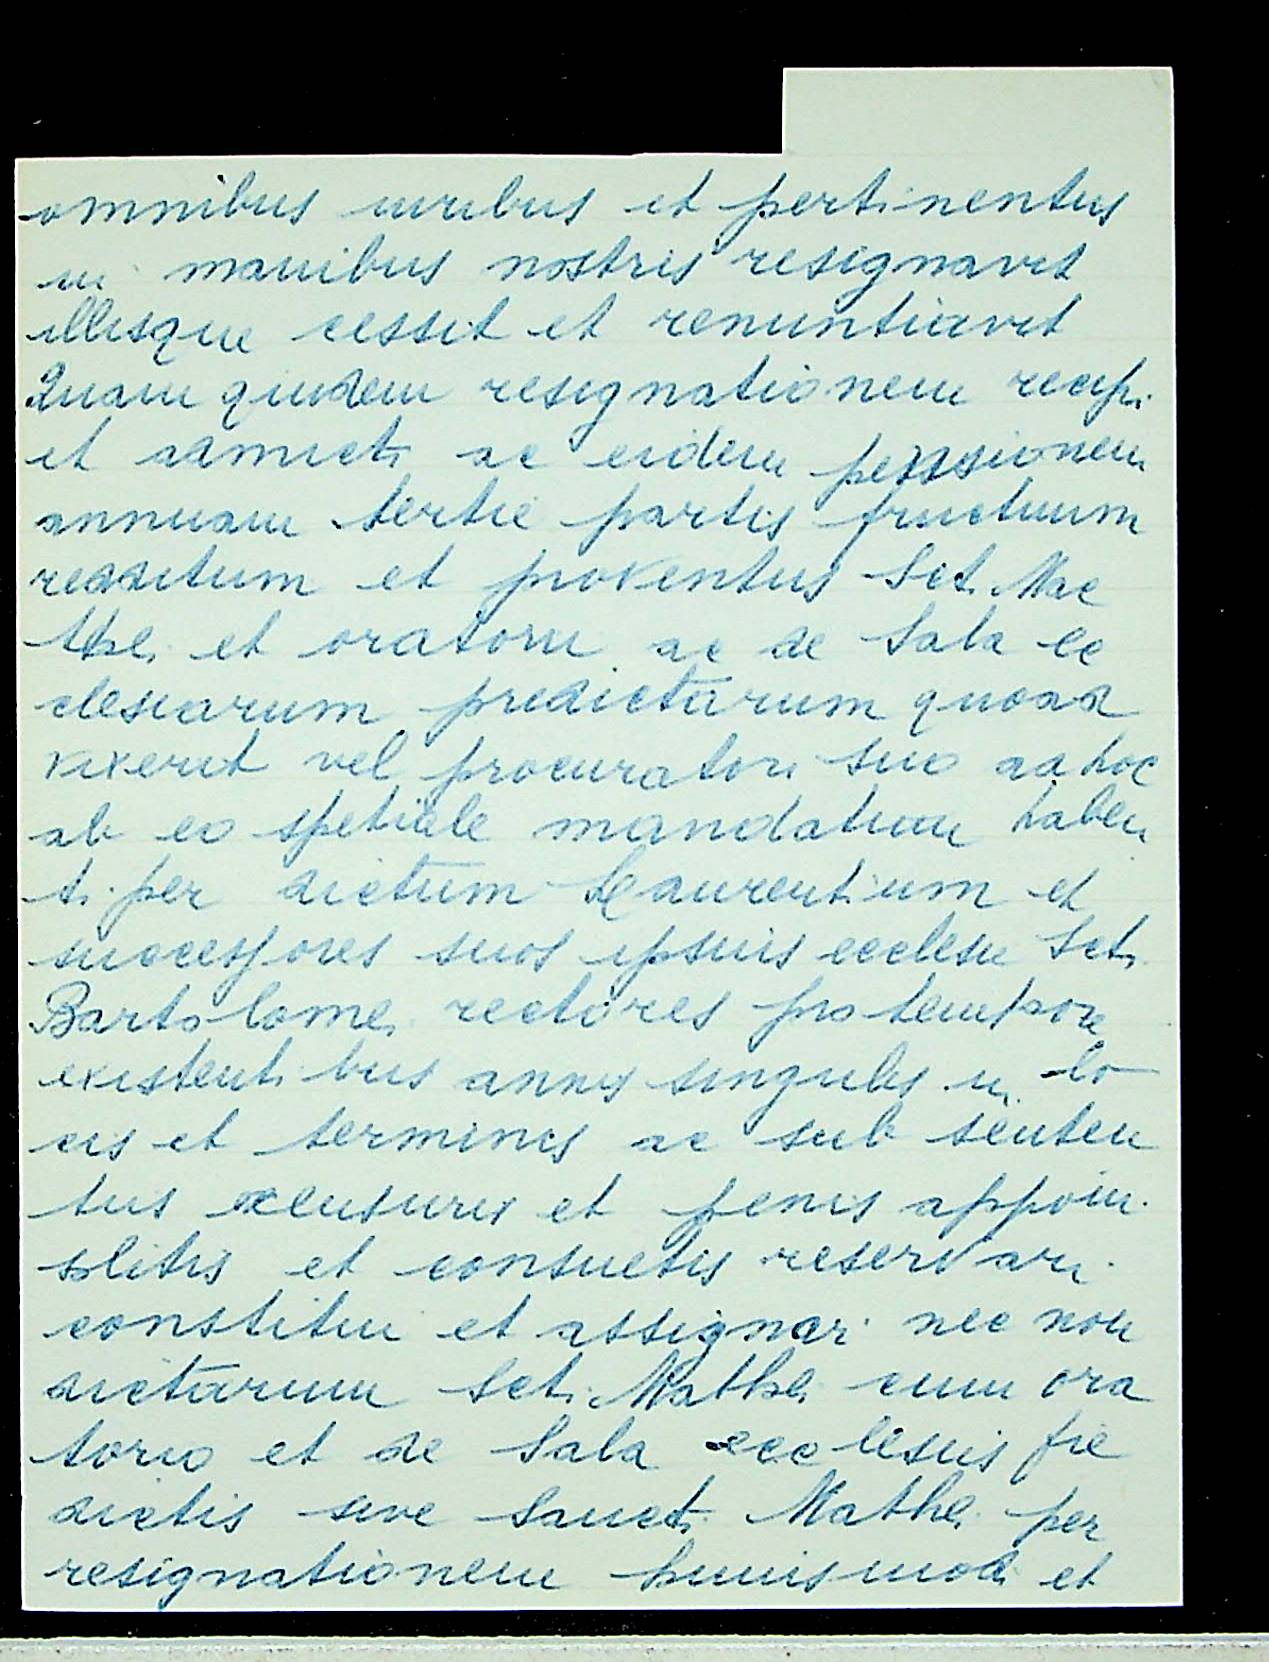 omnibus iuribus et pertinentiis
in manibus nostris resignavit
illisque cessit et renuntiavit
Quam quidem resignationem recepi
et admicti ac eidem penssionem
annuam tertie partis fructuum
reddituum et proventus Scti Mac
thei et oratorii ac de Sala ec
clesiarum predictarum quoad
vixerit vel procuratori suo ad hoc
ab eo spetiale mandatum haben
ti per dictum Laurentium et
successores suos ipsius ecclesie Scti
Bartolomei rectores pro tempore
existentibus annis singulis in lo
cis et terminis ac sub senten
tiis censuris et penis apponi
solitis et consuetis reservari
constitui et assignari nec non
dictarum Scti Mathei cum ora
torio et de Sala ecclesiis pre
dictis sive Sancti Mathei per
resignationem huiusmodi et